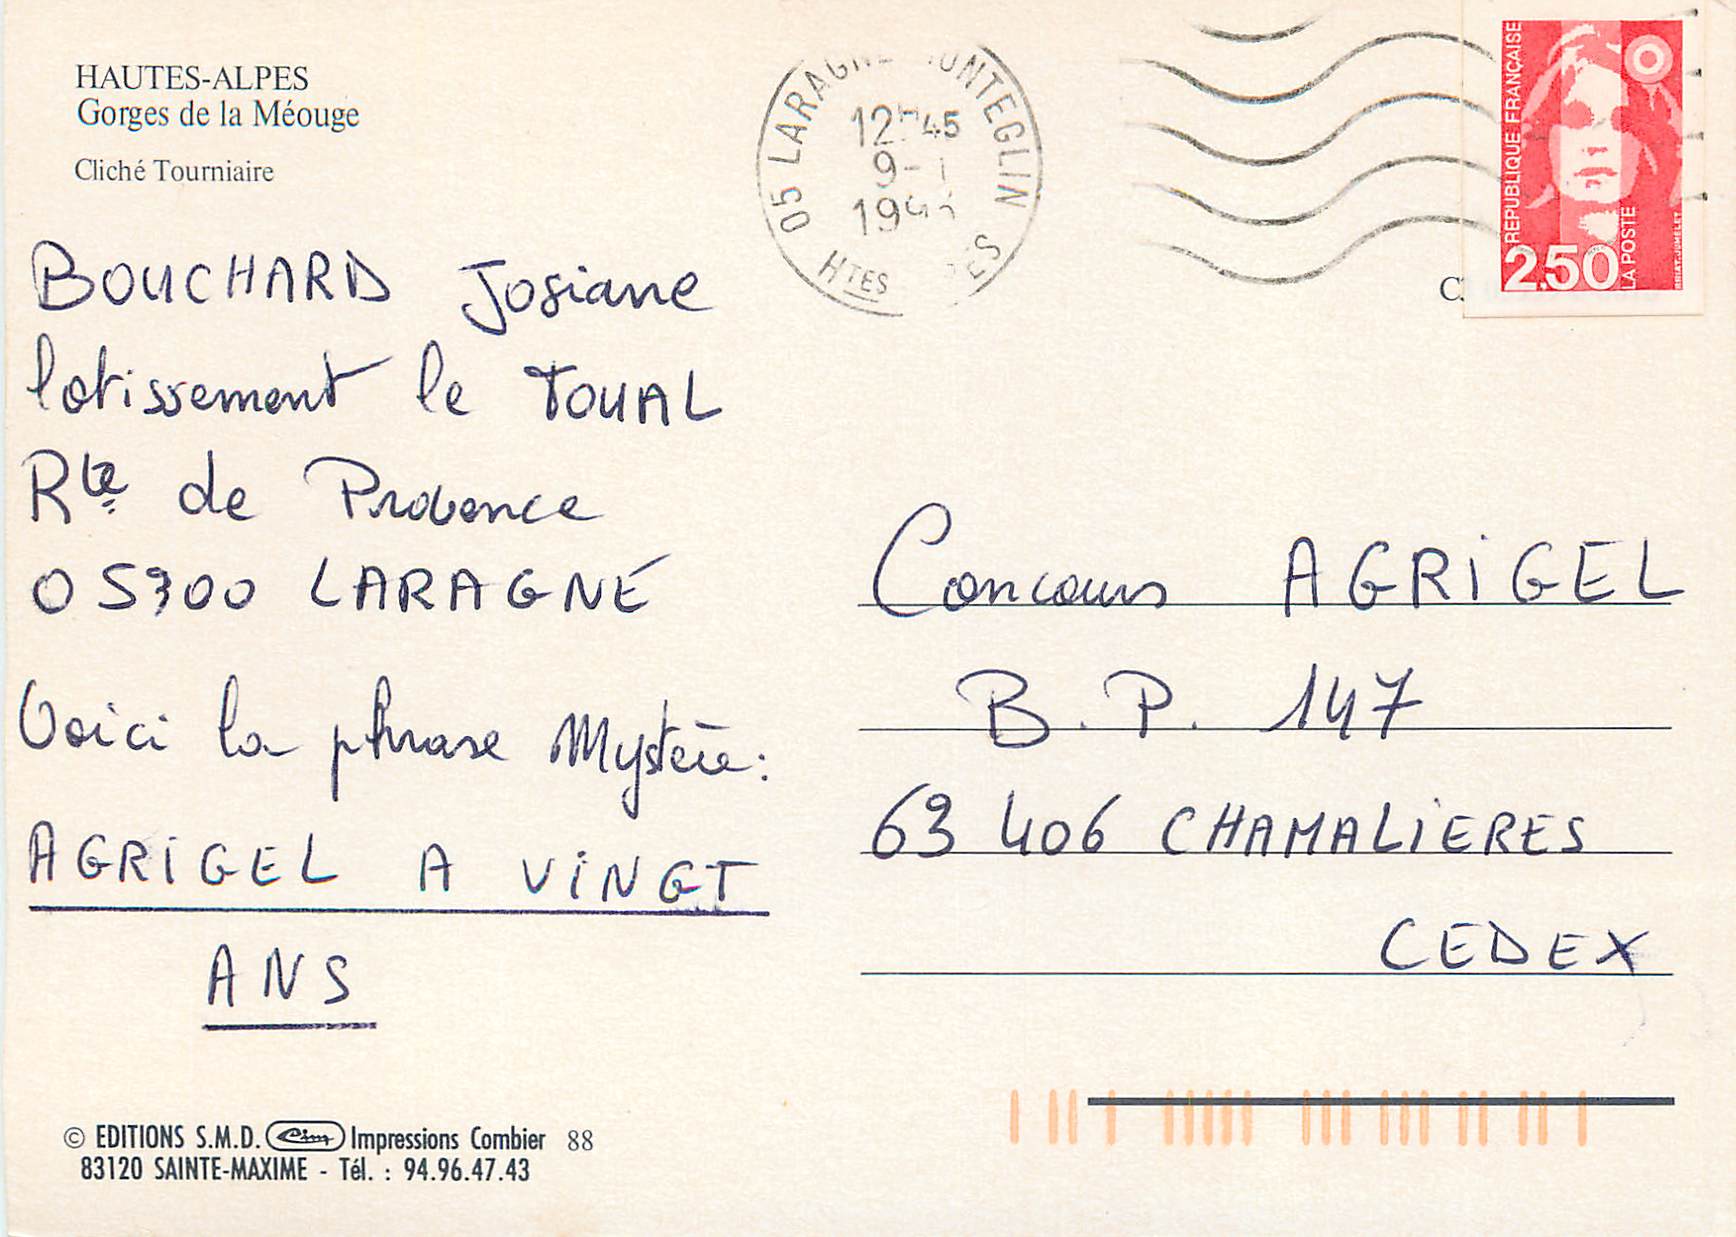 HAUTES-ALPES
Gorges de la Méouge
Cliché Tourniaire
BOUCHARD Josiane
lotissement le TOUAL
Rte de Provence
05300 LARAGNE
Voici la phrase Mystère:
AGRIGEL A VINGT
ANS
© EDITIONS S.M.D. Cim Impressions Combier 88
83120 SAINTE-MAXIME - Tél. : 94.96.47.43
05 LARAGNE MONTEGLIN
12H45
9-1
HTES
REPUBLIQUE FRANÇAISE
2,50
LA POSTE
Concours AGRIGEL
B.P. 147
63 406 CHAMALIERES
CEDEX